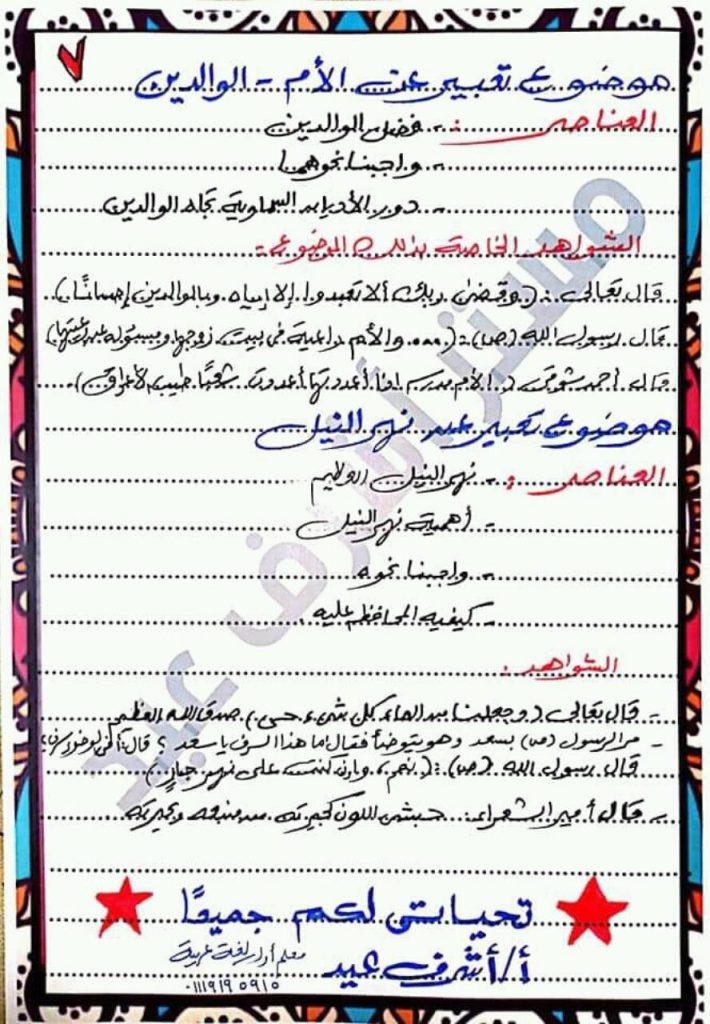 ٧
موضوع تعبير عن الأم - الوالدين
العناصر :- فضل الوالدين
- واجبنا نحوهما
- دور الأديان السماوية تجاه الوالدين
الشواهد الخاصة بذلك الموضوع :-
قال تعالى :- ( وقضى ربك ألا تعبدوا إلا إياه وبالوالدين إحسانًا )
قال رسول الله (ص) :- ( .... والأم راعية في بيت زوجها ومسئولة عن رعيتها )
قال أحمد شوقي ( الأم مدرسة إذا أعددتها أعددت شعبًا طيب الأعراق )
موضوع تعبير عن نهر النيل
العناصر : - نهر النيل
- أهمية نهر النيل
- واجبنا نحوه
- كيفيه المحافظه عليه
الشواهد :
- قال تعالى ( وجعلنا من الماء كل شيء حي ) صدق الله العظيم
- مر الرسول (ص) بسعد وهو يتوضأ فقال ما هذا السرف يا سعد ؟ قال: أفي الوضوء سرف؟
قال رسول الله (ص) : ( نعم ، وإن كنت على نهر جارٍ )
- قال أمير الشعراء: حبشي اللون كجيرته من منبعه وبحيرته
تحياتي لكم جميعًا
أ/ أشرف عيد
معلم أول لغة عربية
٠١١١٩١٩٥٩١٥
مستر أشرف عيد